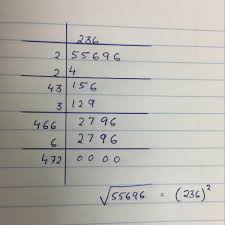 236
2 55696
2 4
43 156
3 129
466 2796
6 2796
472 0000
√55696 = (236)²